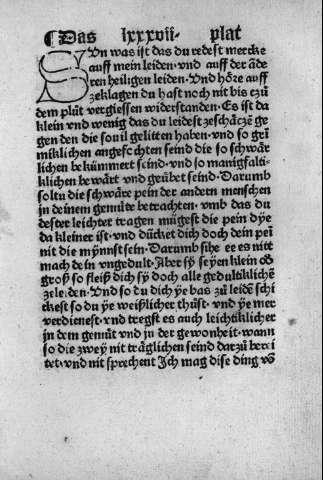 ¶ Das lxxxvii· plat
SVn was ist das du redest mercke
auff mein leiden· vnd auff der āde
ren heiligen leiden· Vnd höre auff
zeklagen du hast noch nit bis zů
dem plůt vergiessen widerstanden· Es ist da
klein vnd wenig das du leidest ze schätzē ge
gen den die souil gelitten haben· vnd so grī
miklichen angefochten seind die so schwär
lichen bekümmert seind· vnd so manigfalti
klichen bewärt vnd geübet seind· Darumb
soltu die schwäre pein der andern menschen
in deinem gemüte betrachten· vmb das du
dester leichter tragen mügest die pein dye
da kleiner ist· vnd dücket dich doch dein pein
nit die mynnst sein· Darumb sihe ee es nit
mach dein vngedult· Aber sy seyen klein od̕
groß so fleiß dich sy doch alle gedultiklichē
zeleiden· Vnd so du dich ye bas zů leidē schi
ckest so du ye weißlicher thůst· vnd ye mer
verdienest· vnd tregst es auch leichtiklicher
in dem gemüt vnd in der gewonheit· wann
so die zwey nit träglichen seind darzů berei
tet· vnd nit sprechent Ich mag dise ding vō